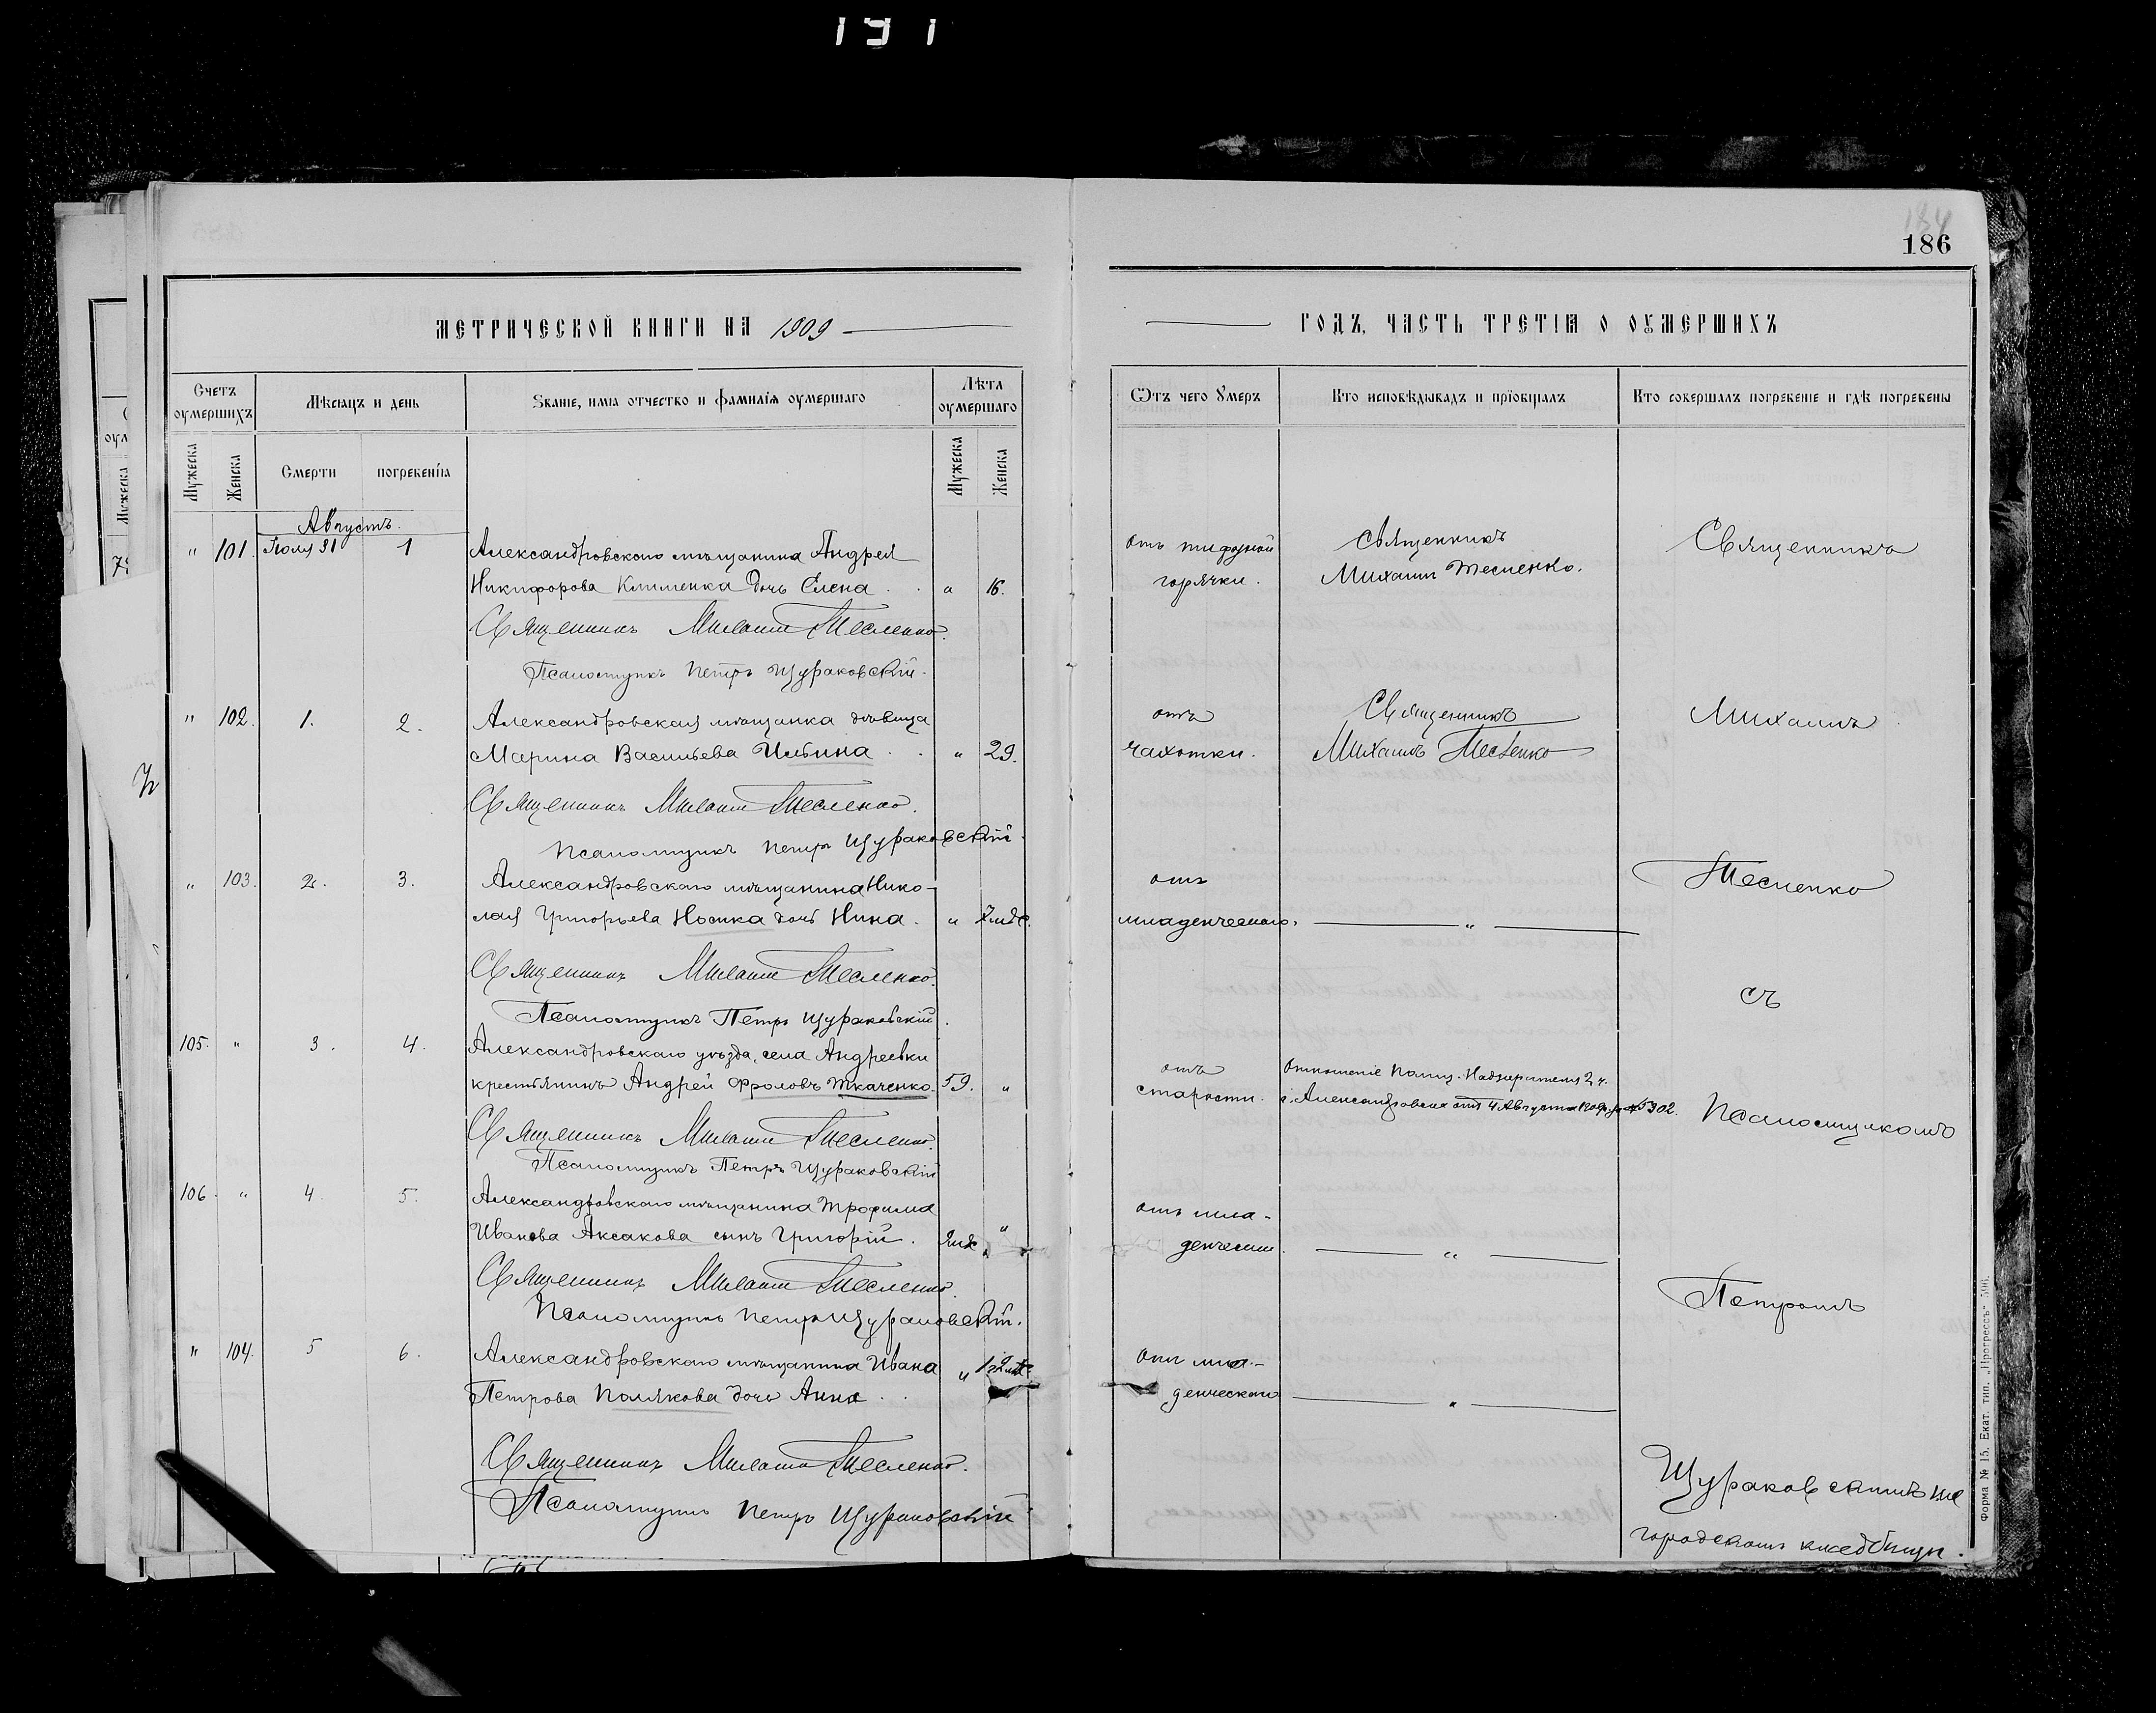 191
184
186
МЕТРИЧЕСКОЙ КНИГИ НА 1909
ГОДЪ, ЧАСТЬ ТРЕТІЯ О ОУМЕРШИХЪ
Счетъ оумершихъ
Мѣсяцъ и день
Званіе, имя отчество и фамилія оумершаго
Лѣта оумершаго
Отъ чего Умеръ
Кто исповѣдывадъ и пріобщалъ
Кто совершалъ погребеніе и гдѣ погребены
Мужеска
Женска
Смерти
погребенія
Мужеска
Женска
Августъ.
" 101. Іюля 31 1 Александровскаго мѣщанина Андрея
Никифорова Клименка дочь Елена . . " 16.
отъ тифозной
горячки.
Священникъ
Михаилъ Тесленко.
Священникъ
Священникъ Михаилъ Тесленко.
Псаломщикъ Петръ Щураковскій.
" 102. 1. 2. Александровская мѣщанка дѣвица
Марина Васильева Ильина . . " 29.
отъ
чахотки.
Священникъ
Михаилъ Тесленко
Михаилъ
Священникъ Михаилъ Тесленко.
Псаломщикъ Петръ Щураковскій.
" 103. 2. 3. Александровскаго мѣщанина Нико-
лая Григорьева Носика дочь Нина. "
отъ
младенческаго.
"
Тесленко
Священникъ Михаилъ Тесленко.
Псаломщикъ Петръ Щураковскій.
съ
105. " 3. 4. Александровскаго уѣзда, села Андреевки
крестьянинъ Андрей Фроловъ Ткаченко. 59. "
отъ
старости.
отношеніе Полиц. Надзирателя 2 ч.
г. Александровска отъ 4 Августа 1909 г. № 5302.
Псаломщикомъ
Священникъ Михаилъ Тесленко.
Псаломщикъ Петръ Щураковскій
106. " 4. 5. Александровскаго мѣщанина Трофима
Иванова Аксакова сынъ Григорій. "
отъ мла-
денческ.
"
Священникъ Михаилъ Тесленко.
Псаломщикъ Петръ Щураковскій.
Петромъ
" 104. 5 6. Александровскаго мѣщанина Ивана
Петрова Полякова дочь Анна . . "
отъ мла-
денческаго
"
Священникъ Михаилъ Тесленко.
Псаломщикъ Петръ Щураковскій
Щураковскимъ на
городскомъ кладбищѣ.
Форма № 15. Екат. тип. „Прогрессъ"